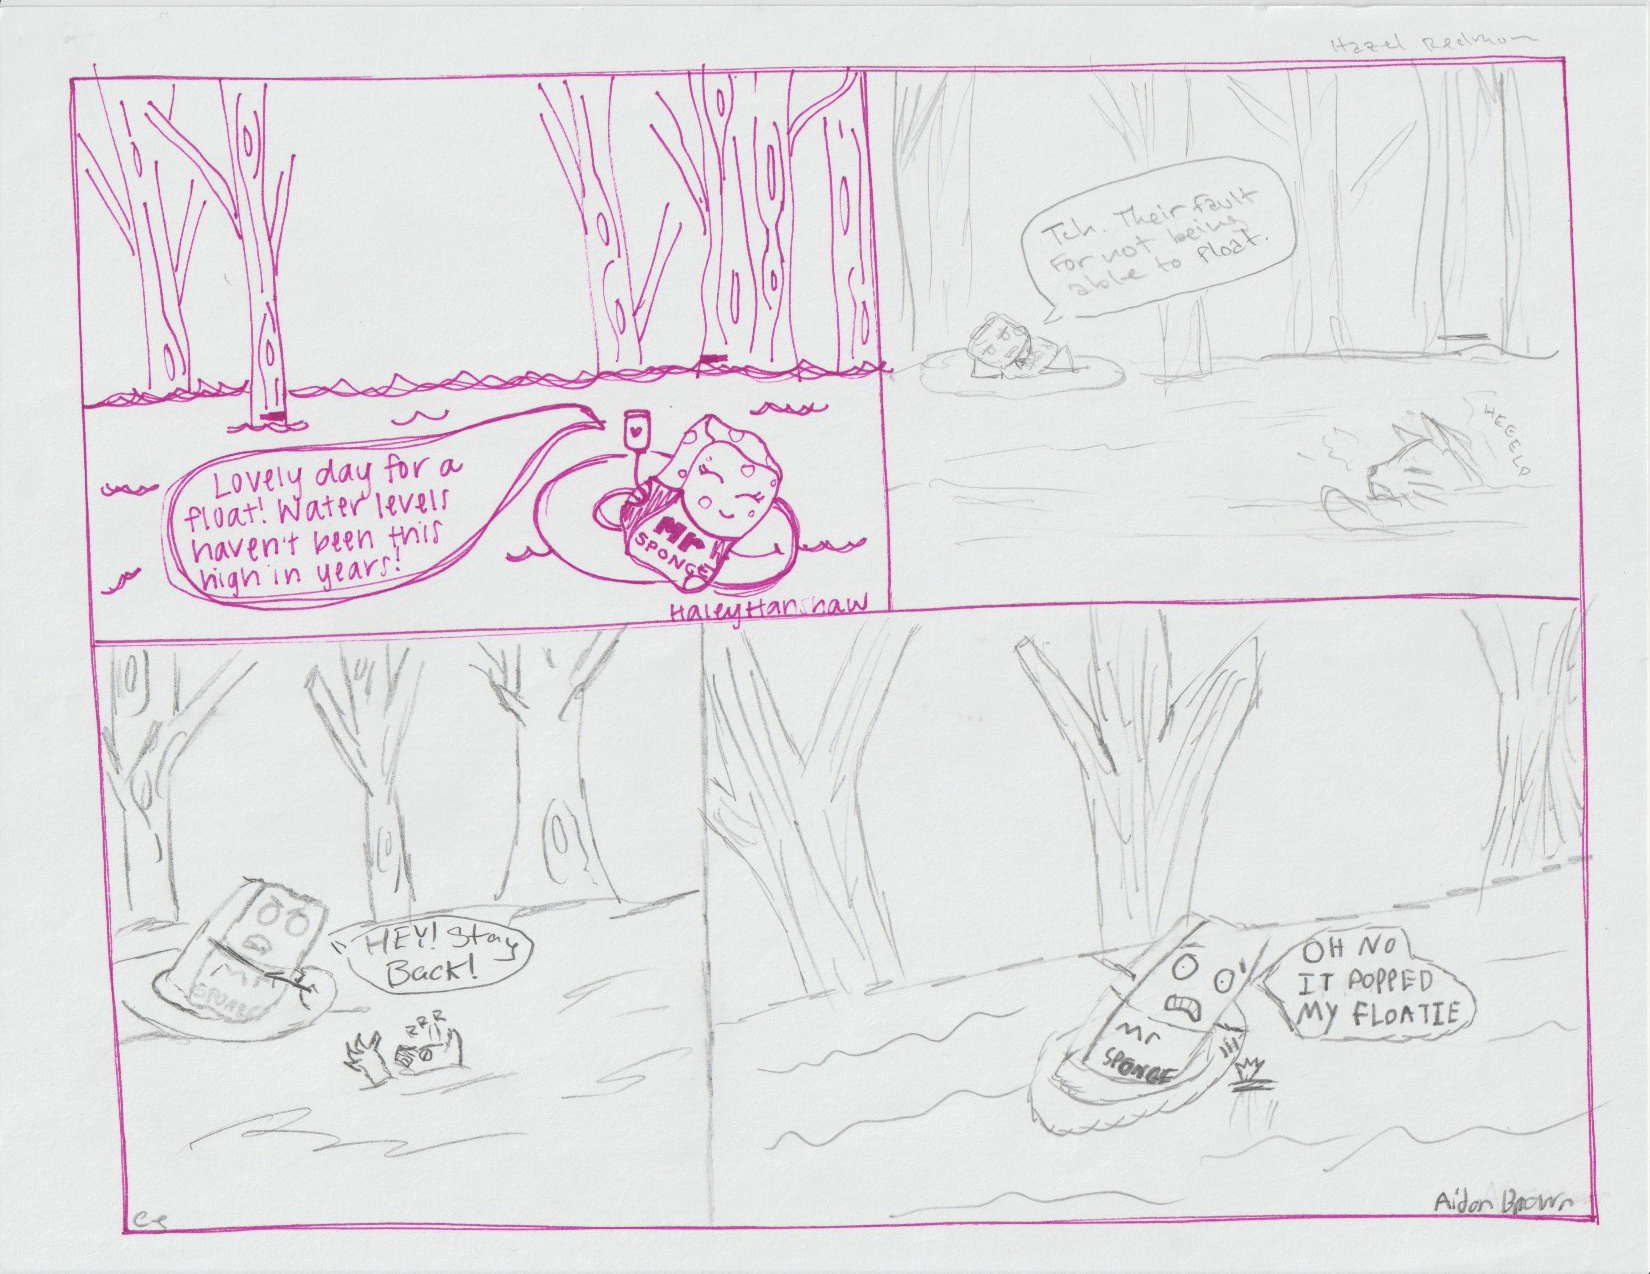 Hazel Redmon
Lovely day for a
float! Water levels
haven't been this
high in years!
Mr
SPONGE
Haley Hanshaw
Tch. Their fault
For not being
able to float.
HEEELP
HEY! Stay
Back!
Mr
SPONGE
RRR
CS
OH NO
IT POPPED
MY FLOATIE
Mr
SPONGE
Aidan Brown